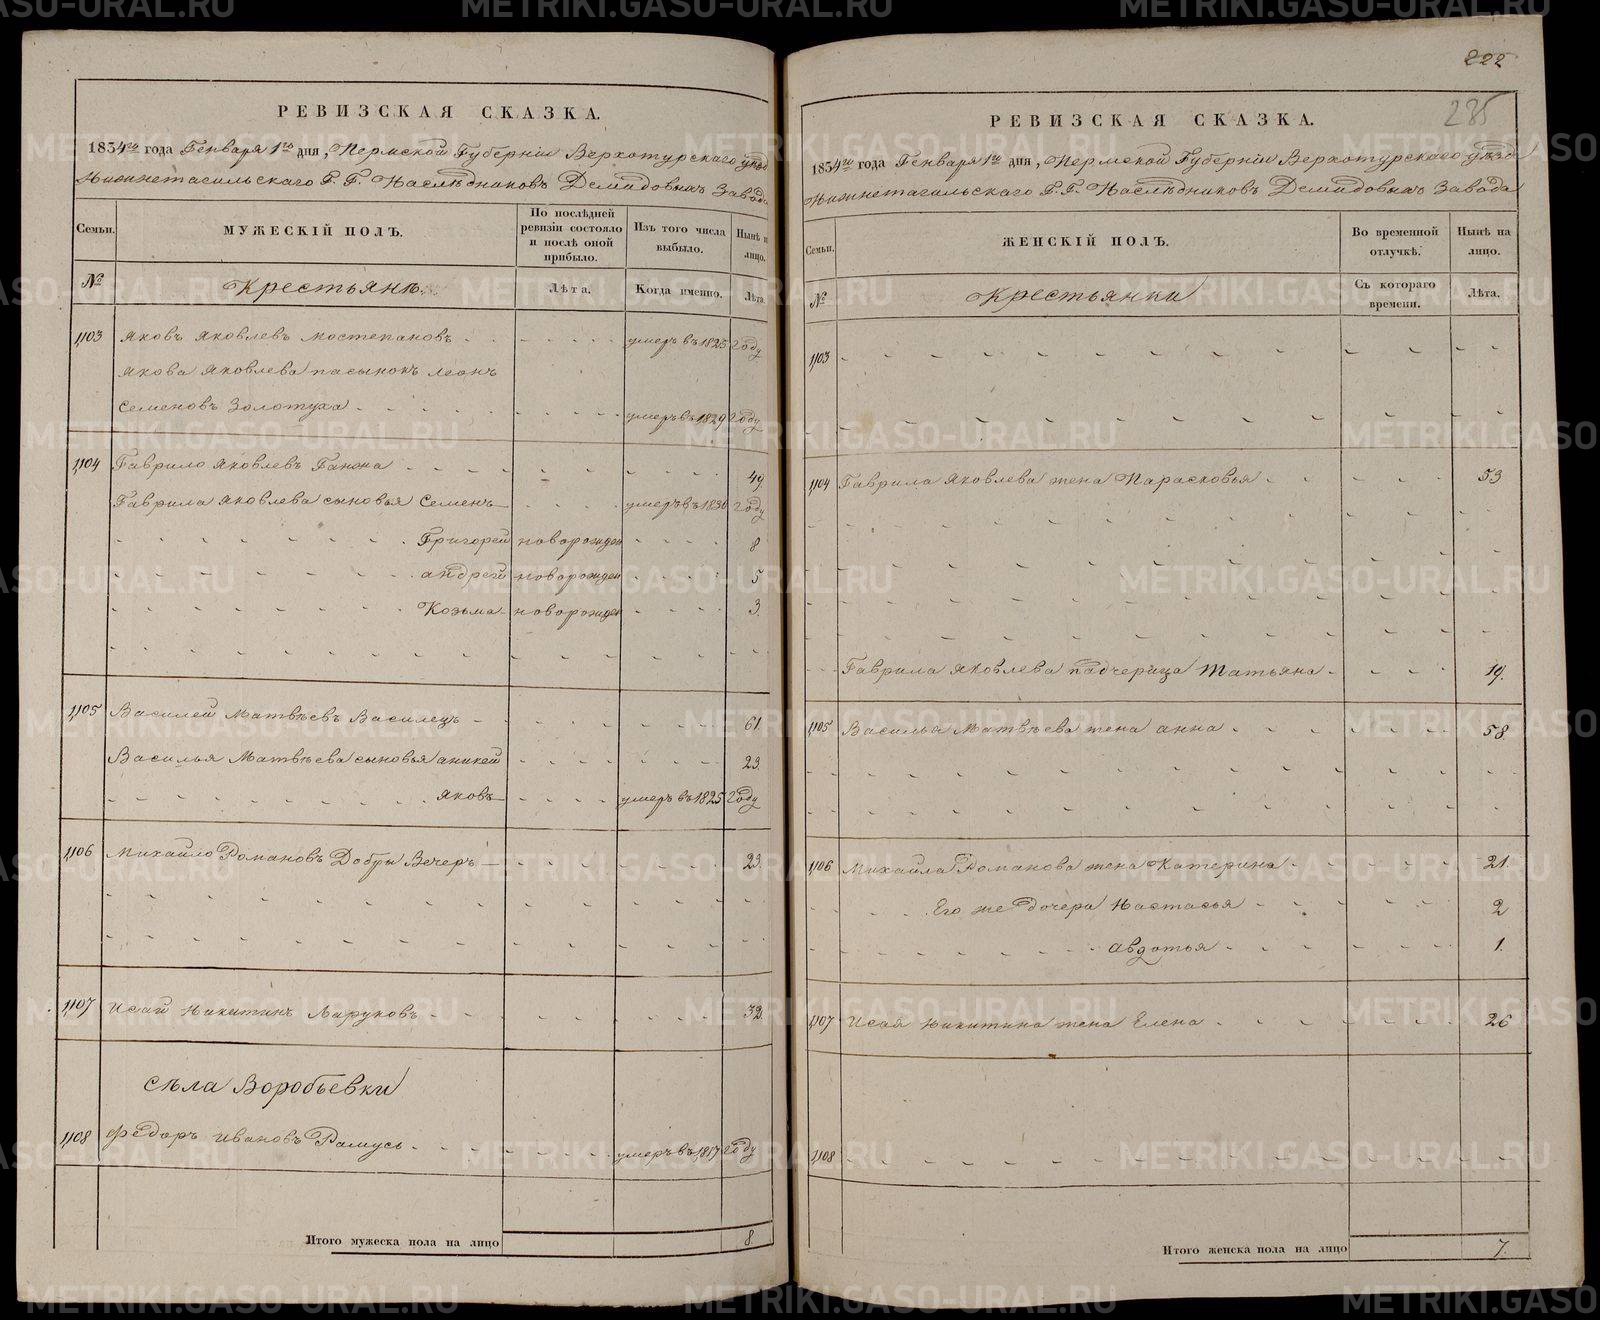 РЕВИЗСКАЯ СКАЗКА.
1834го года Генваря 1го дня, Пермской Губернiи Верхотурскаго уѣзд
Нижнетагильскаго Г. Г. Наслѣдниковъ Демидовыхъ Завода
Семьи. МУЖЕСКIЙ ПОЛЪ. По послѣдней ревизiи состояло и послѣ оной прибыло. Изъ того числа выбыло. Нынѣ н лицо.
№ Крестьянѣ. Лѣта. Когда именно. Лѣта.
1,103 Яковъ Яковлевъ Мостепановъ умеръ въ 1825 году
Якова Яковлева пасынокъ Леонъ
Семеновъ Золотуха умеръ въ 1829 году
1,104 Гаврило Яковлевъ Ганжа 49
Гаврила Яковлева сыновья Семенъ умеръ въ 1830 году
Григорей новорожден 8
Андрей новорожден 5
Козьма новорожден 3
1,105 Василей Матвѣевъ Василецъ 61
Василья Матвѣева сыновья Аникей 23
Яковъ умеръ въ 1825 году
1,106 Михайло Романовъ Добры Вечеръ 23
1,107 Исай Никитинъ Ларуковъ 32
Сѣла Воробьевки
1,108 Федоръ Ивановъ Рамусь умеръ въ 1,817 году
Итого мужеска пола на лицо 8.
222
235
РЕВИЗСКАЯ СКАЗКА.
1834го года Генваря 1го дня, Пермской Губернiи Верхотурскаго уѣзда
Нижнетагильскаго Г. Г. Наслѣдниковъ Демидовыхъ Завода
Семьи. ЖЕНСКIЙ ПОЛЪ. Во временной отлучкѣ. Нынѣ на лицо.
№ Крестьянки Съ котораго времени. Лѣта.
1,103
1,104 Гаврила Яковлева жена Парасковья 53
Гаврила Яковлева падчерица Татьяна 19.
1,105 Василья Матвѣева жена Анна 58
1,106 Михайла Романова жена Катерина 21.
Его же дочери Настасья 2
Авдотья 1.
1,107 Исая Никитина жена Елена 26
1,108
Итого женска пола на лицо 7.
METRIKI.GASO-URAL.RU